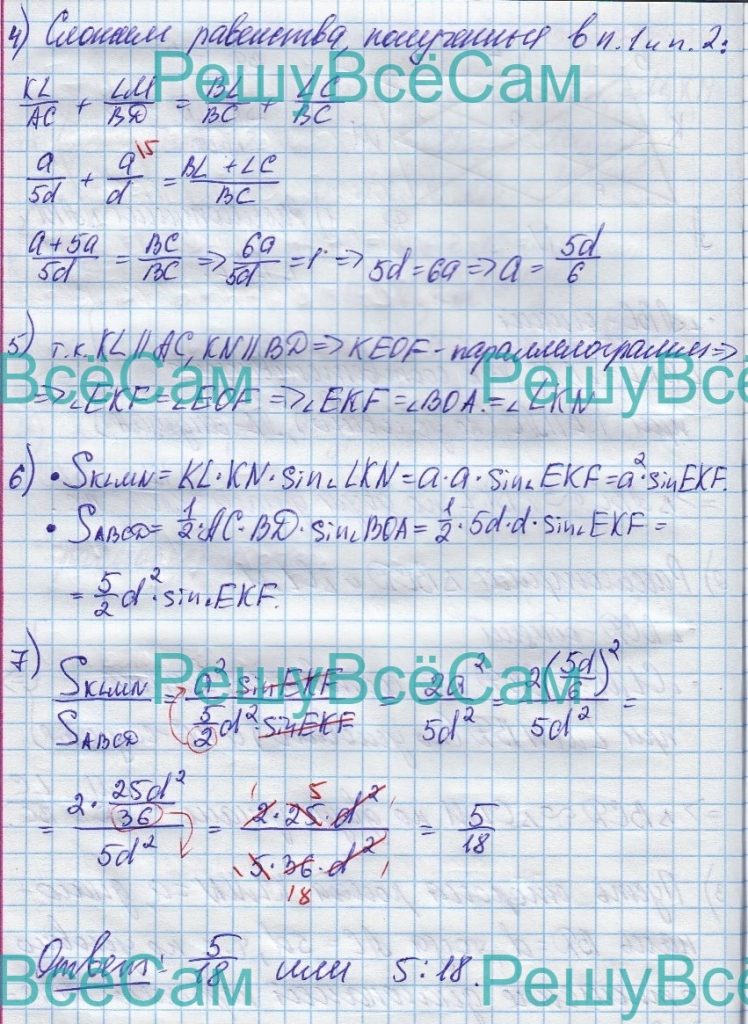 4) Сложим равенства, полученные в п.1 и п.2:
РешуВсёСам
KL/AC + LM/BD = BL/BC + LC/BC
a/5d + a/d \5 = (BL + LC)/BC
(a+5a)/5d = BC/BC => 6a/5d = 1 => 5d = 6a => a = 5d/6
5) т.к. KL || AC, KN || BD => KEOF - параллелограмм =>
ВсёСам РешуВсё
=> ∠EKF = ∠EOF => ∠EKF = ∠BOA = ∠LKN
6) • S_KLMN = KL·KN·sin∠LKN = a·a·sin∠EKF = a²·sin EKF.
• S_ABCD = 1/2·AC·BD·sin∠BOA = 1/2·5d·d·sin∠EKF =
= 5/2 d²·sin∠EKF.
РешуВсёСам
7) S_KLMN/S_ABCD = (a² sin EKF)/(5/2 d²·sin EKF) = 2a²/5d² = 2(5d/6)²/5d² =
= (2·25d²/36)/5d² = (2·25·d²)/(5·36·d²) = 5/18
Ответ: 5/18 или 5:18.
ВсёСам РешуВсё